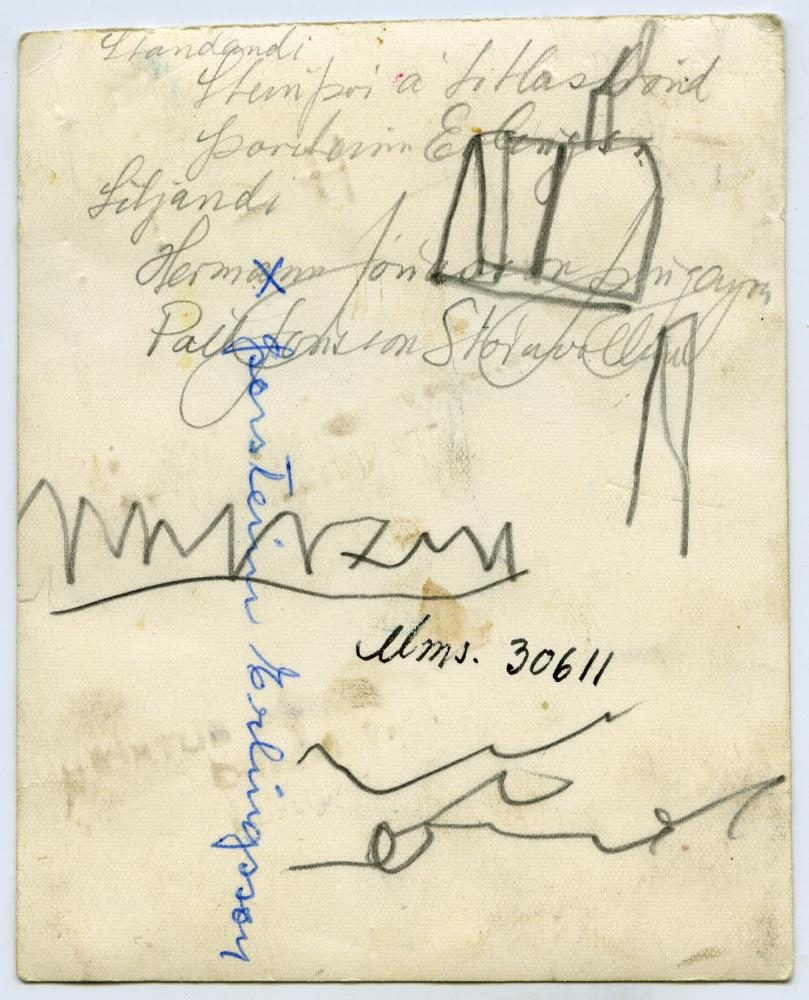 Standandi
Steinþór á Litluströnd
Þorsteinn Erlingss.
Sitjandi
Hermann Jónasson Þingeyru
Páll Jónsson Stóruvöllum
x Þorsteinn Erlingsson
Mms. 30611